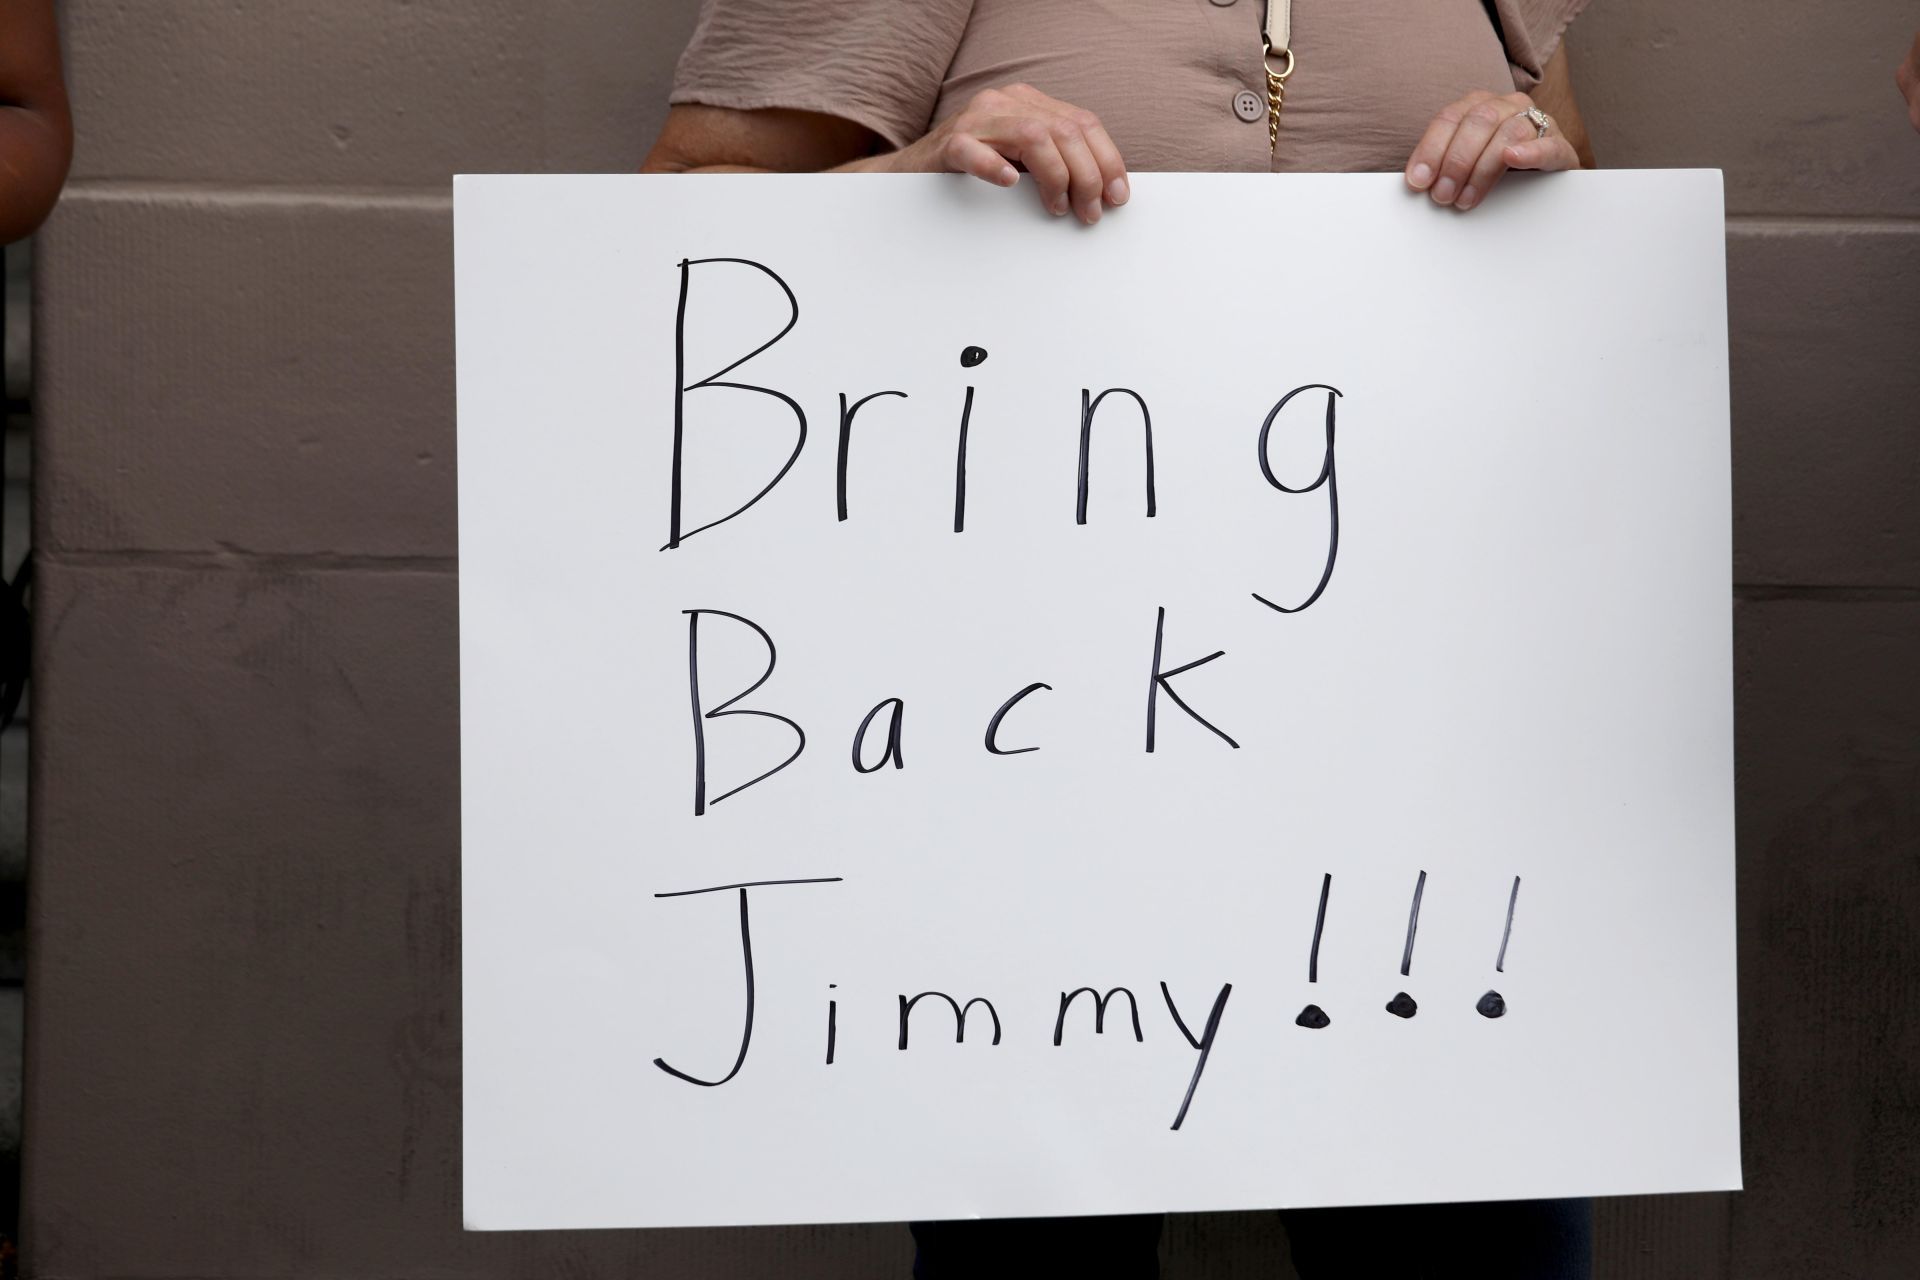 Bring
Back
Jimmy!!!